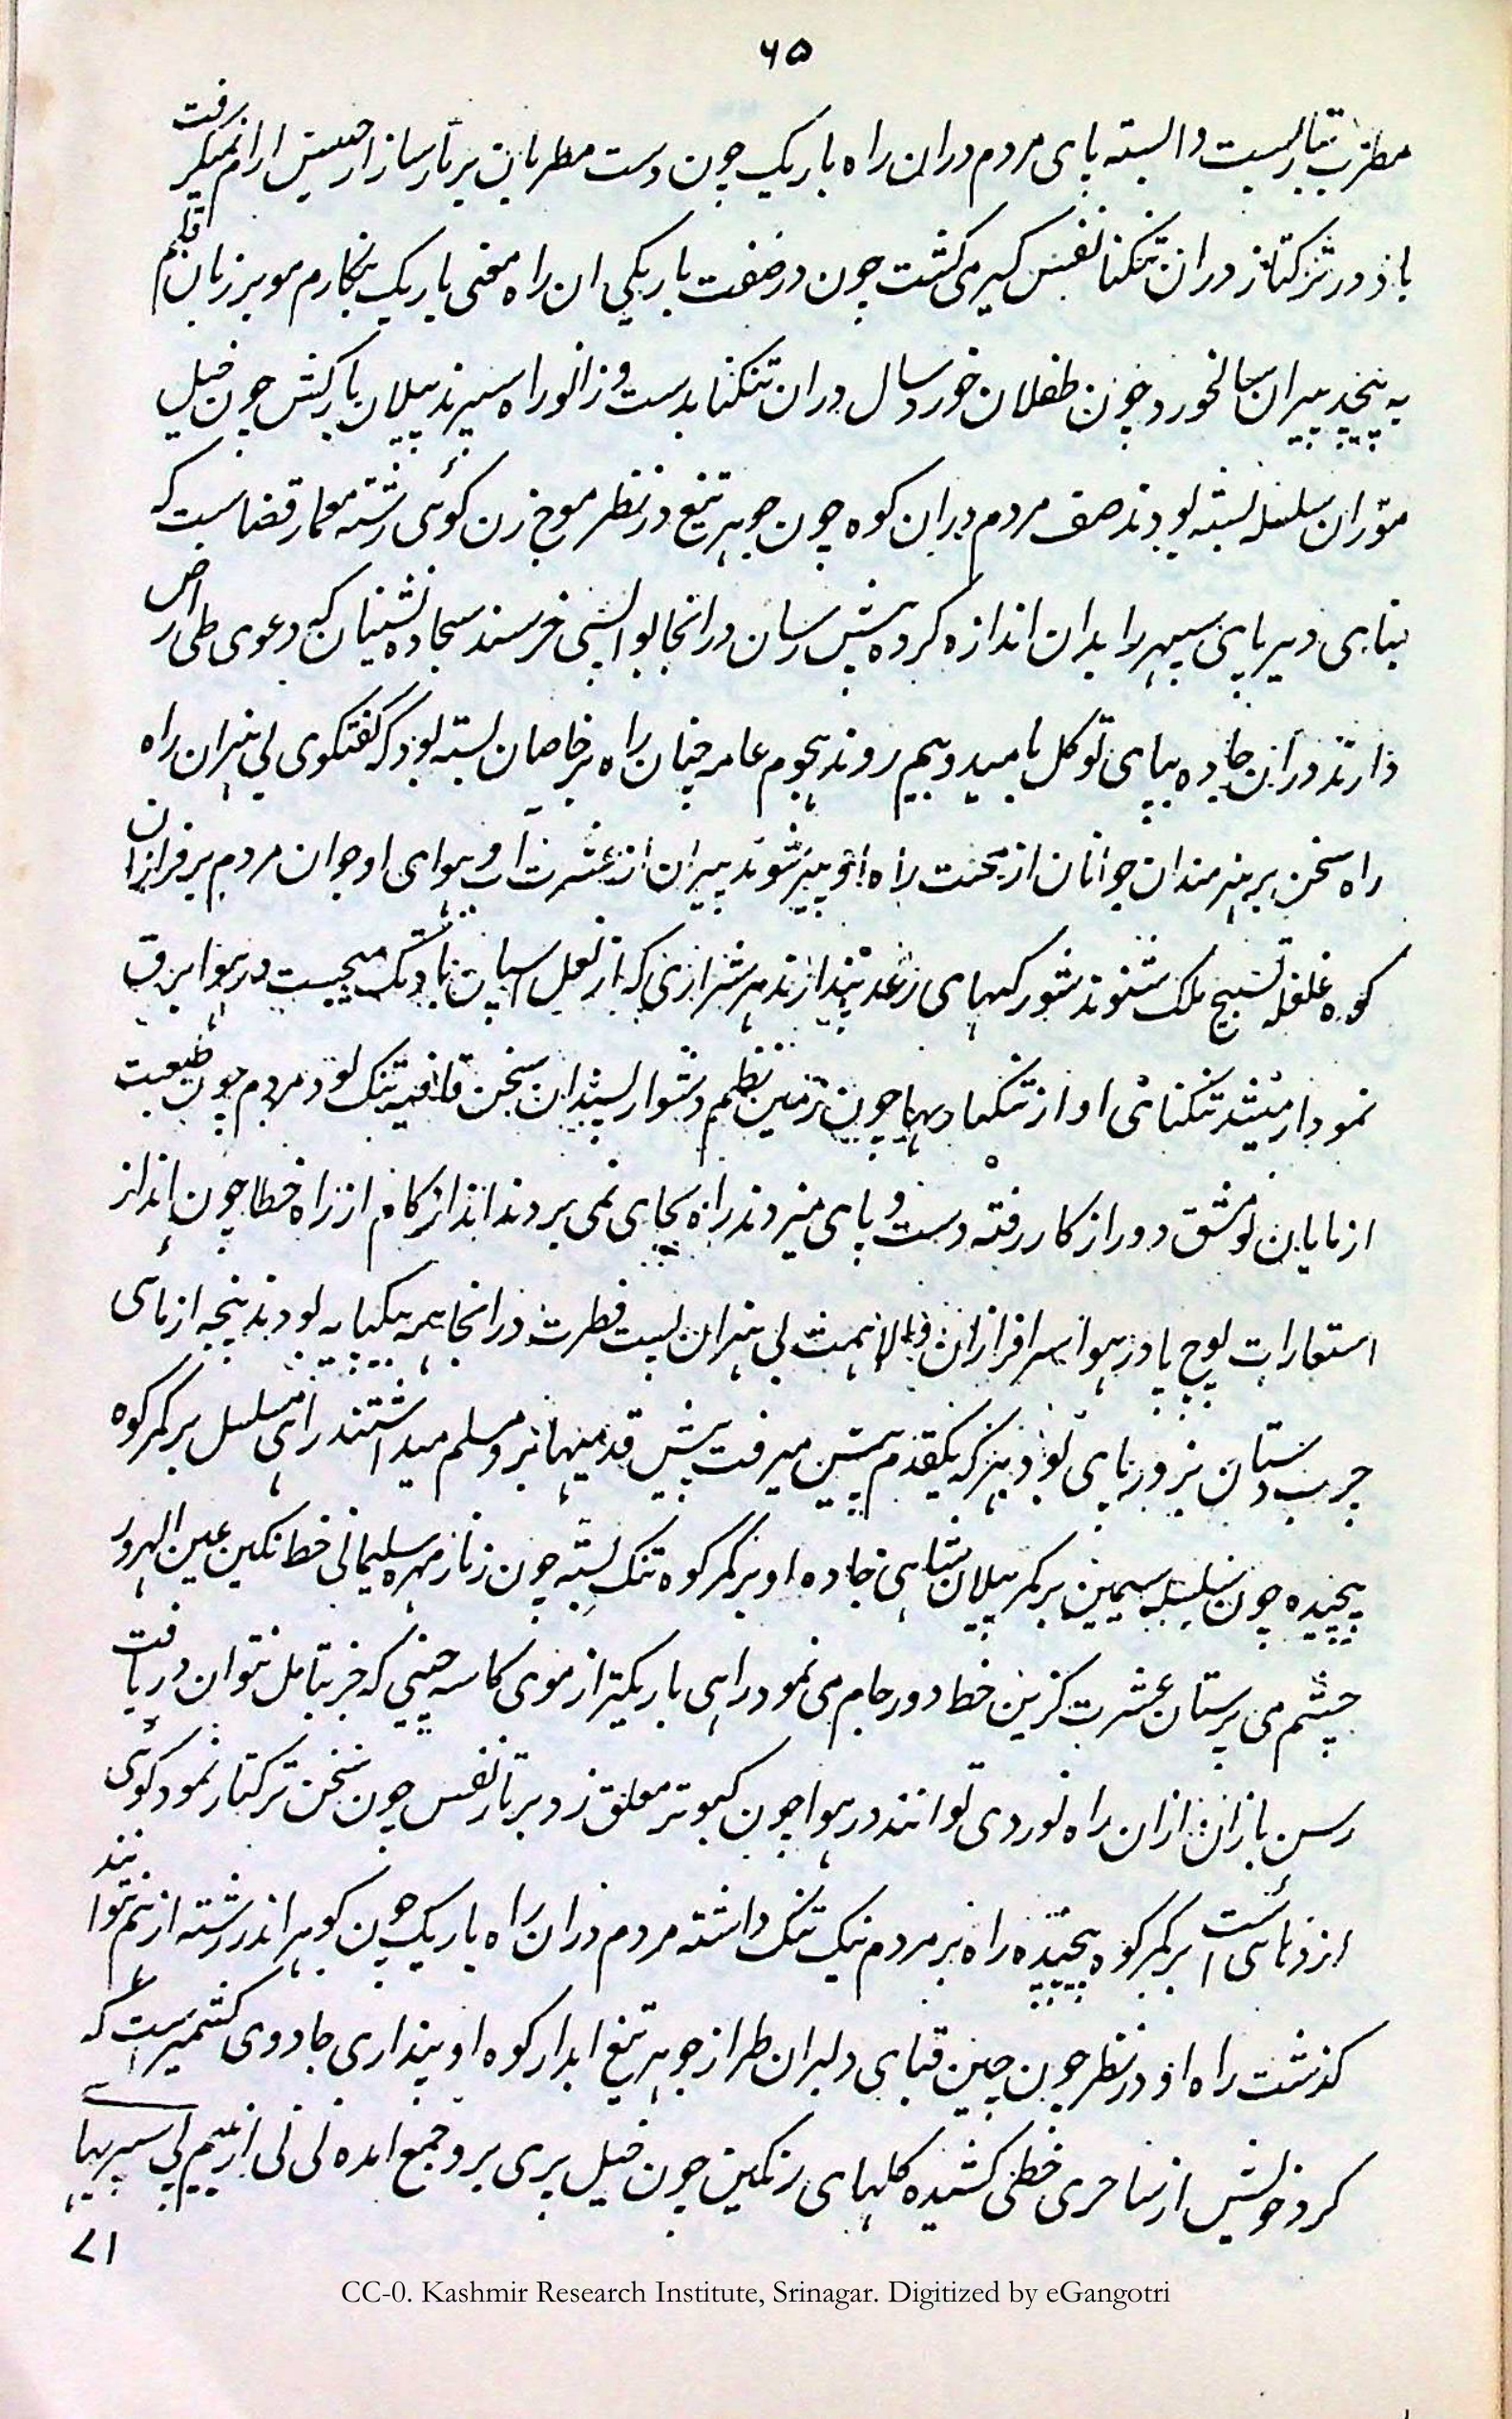 ۶۵
مطرب بتاریست وابسته پای مردم دران راه باریک چون دست مطربان بر تار ساز از جنبش ارام نمیگرفت
باد در ترکتاز دران تنکنا نفس کیر می کشت چون در صفت باریکی ان راه معنی باریک نکارم مو بر زبان قلم
به پیچد پیران سالخورد چون طفلان خورد سال دران تنکنا بدست و زانو راه سپرند پیلان بارکش چون خیل
موران سلسله بسته بودند صف مردم دران کوه چون جوهر تیغ در نظر موج زن کوئی رشته معمار قضاست که
بنای دیر پای سپهر را بدان اندازه کرده پیش رسان درانجا بواپسی خرسند سجاده نشینان که دعوی طی ارض
دارند دران جاده بپای توکل بامید و بیم روند هجوم عامه چنان راه بر خاصان بسته بود که گفتکوی بی هنران راه
راه سخن بر هنرمندان جوانان از محنت راه او پیر شوند پیران از عشرت آب و هوای او جوان مردم بر فراز ان
کوه غلغله تسبیح ملک شنوند شور کبهای رعد پندارند هر شراری که از نعل اسپان بادتک میجست در هوا برق
نمودار میشد تنکنای او از تنکها دیها چون زمین نظم دشوار پسندان سخن قافیه تنک بود مردم چون طبیعت
از نایابان نومشق دور از کار رفته دست و پای میزدند راه بجای نمی بردند انداز کام از راه خطا چون انداز
استعارات پوچ پا در هوا سرافرازان والا همت بی هنران پست فطرت درانجا همه یکپایه بودند پنجه ازمائی
چرب دستان بزور پای بود هر که یکقدم پیش میرفت پیش قدمیها برو مسلم میداشتند راهی مسلسل بر کمر کوه
پیچیده چون سلسله سیمین بر کمر پیلان شاهی جاده او بر کمر کوه تنک بسته چون زنار مهره سلیمانی خط نکین عین الهرور
چشم می پرستان عشرت کزین خط دور جام می نمود راهی باریکتر از موی کاسه چینی که جز بتامل نتوان دریافت
رسن بازان ازان راه نوردی توانند در هوا چون کبوتر معلق زد و بر تار نفس چون سخن ترکتاز نمود کوئی
اژدهائی است بر کمر کوه پیچیده راه بر مردم نیک تنک داشته مردم دران راه باریک چون کوهر اندر رشته از هم نتوانند
کذشت راه او در نظر چون چین قبای دلبران طراز جوهر تیغ ابدار کوه او پنداری جادوی کشمیرست که
کرد خویش از ساحری خطی کشیده کلهای رنکین چون خیل پری برو جمع امده نی نی از بیم بی سپریها
۷۱
CC-0. Kashmir Research Institute, Srinagar. Digitized by eGangotri